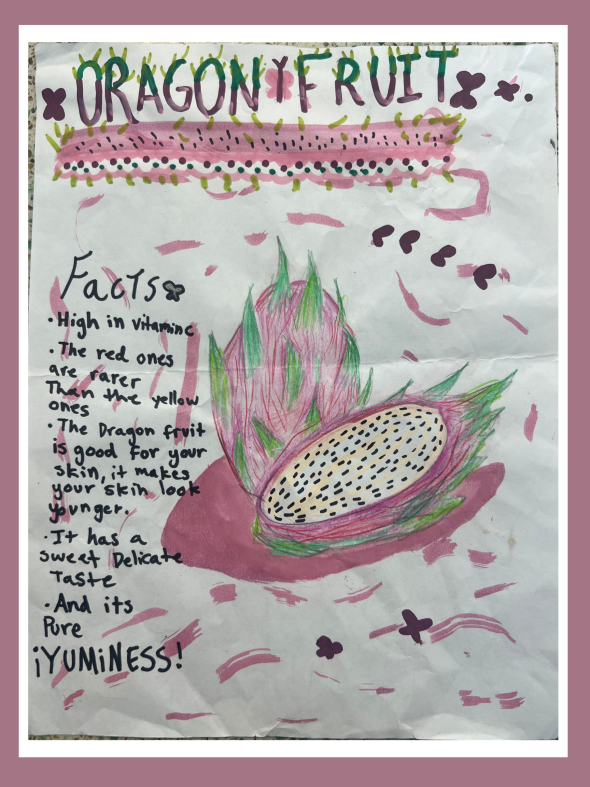 DRAGON FRUIT
Facts
· High in vitamine
· The red ones
are rarer
Than the yellow
ones
· The Dragon fruit
is good for your
skin, it makes
your skin look
younger.
· It has a
sweet Delicate
Taste
· And its
Pure
¡YUMiNESS!